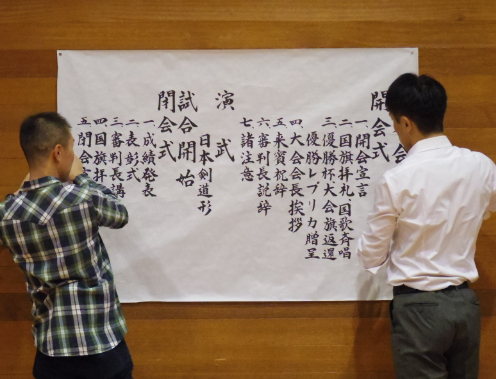 開会式
一.開会宣言
二.国旗拝礼・国歌斉唱
三.優勝杯大会旗返還
優勝レプリカ贈呈
四.大会会長挨拶
五.来賓祝辞
六.審判長説辞
七.諸注意
演武
日本剣道形
試合開始
閉会式
一.成績発表
二.表彰式
三.審判長講
四.国旗拝
五.閉会宣